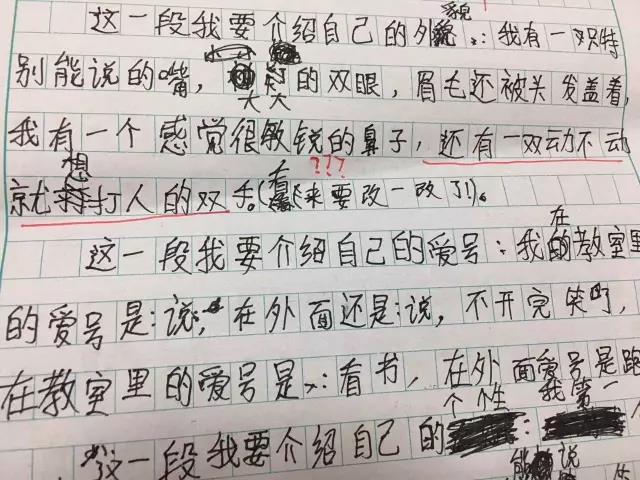 这一段我要介绍自己的外貌：我有一只特
别能说的嘴，大大的双眼，眉毛还被头发盖着，
我有一个感觉很敏锐的鼻子，还有一双动不动
???
就想打人的双手。(看来要改一改了!)。
这一段我要介绍自己的爱号：我在教室里
的爱号是：说，在外面还是：说，不开完笑叮，
在教室里的爱号是：看书，在外面爱号是跑
这一段我要介绍自己的个性：我第一
能说